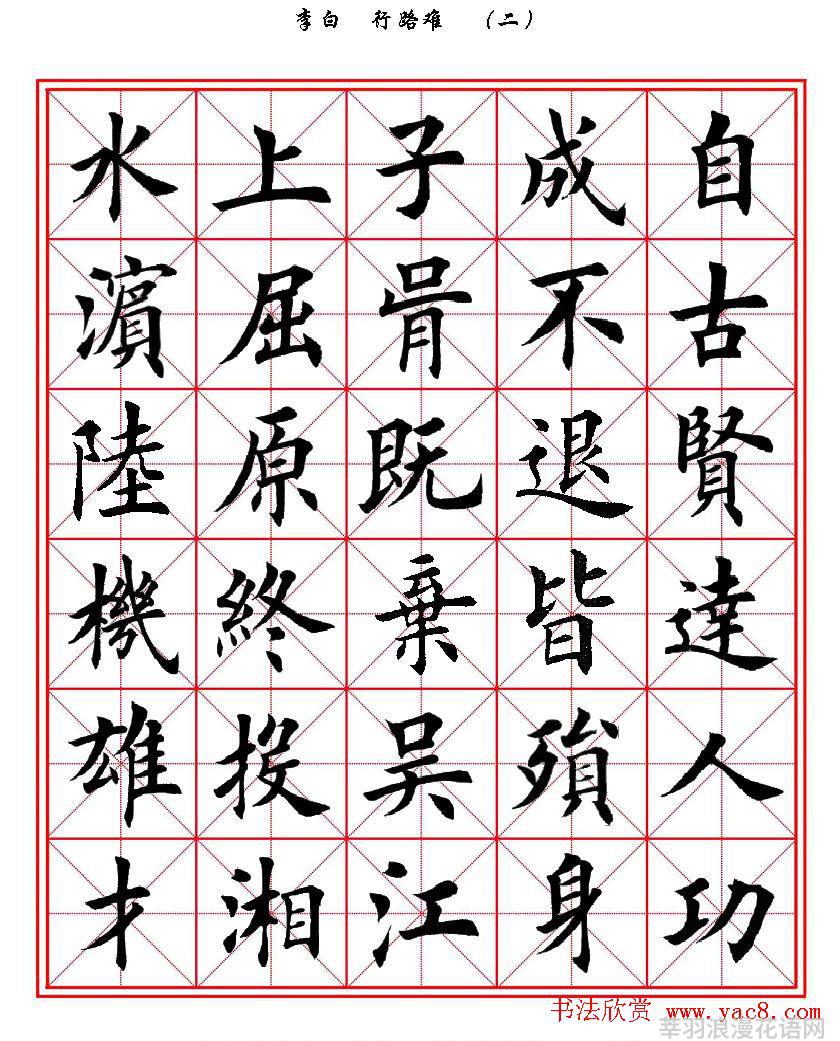 李白 行路难 （二）
自古賢達人功
成不退皆殞身
子胥既棄吴江
上屈原終投湘
水濱陸機雄才
书法欣赏 www.yac8.com
莘羽浪漫花语网